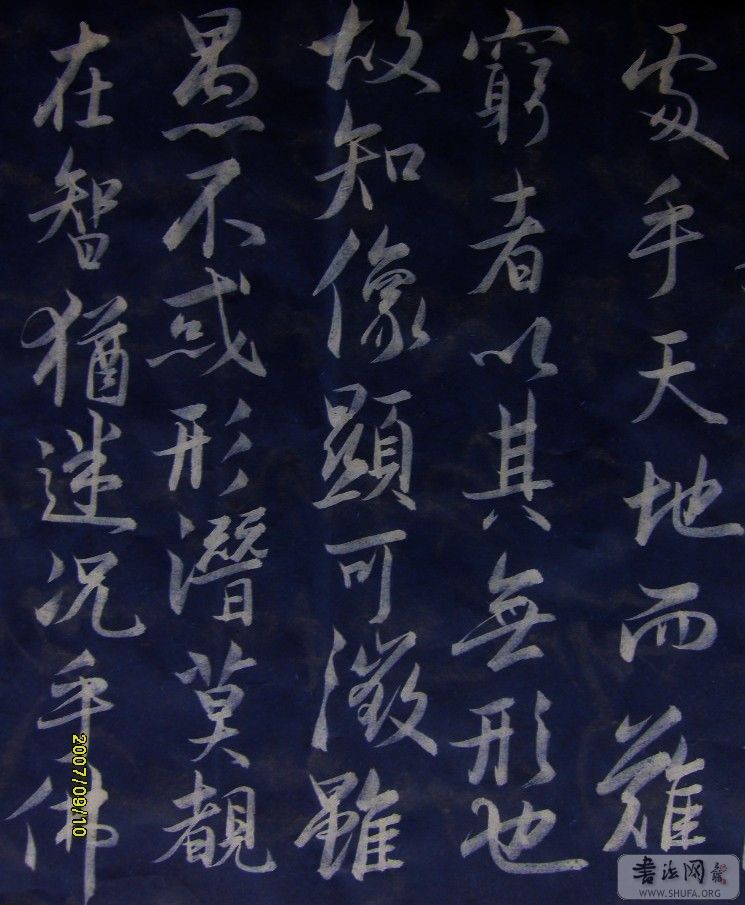 處乎天地而難
窮者以其無形也
故知像顯可徵雖
愚不惑形潛莫覩
在智猶迷况乎佛
2007/09/10
書法网
WWW.SHUFA.ORG